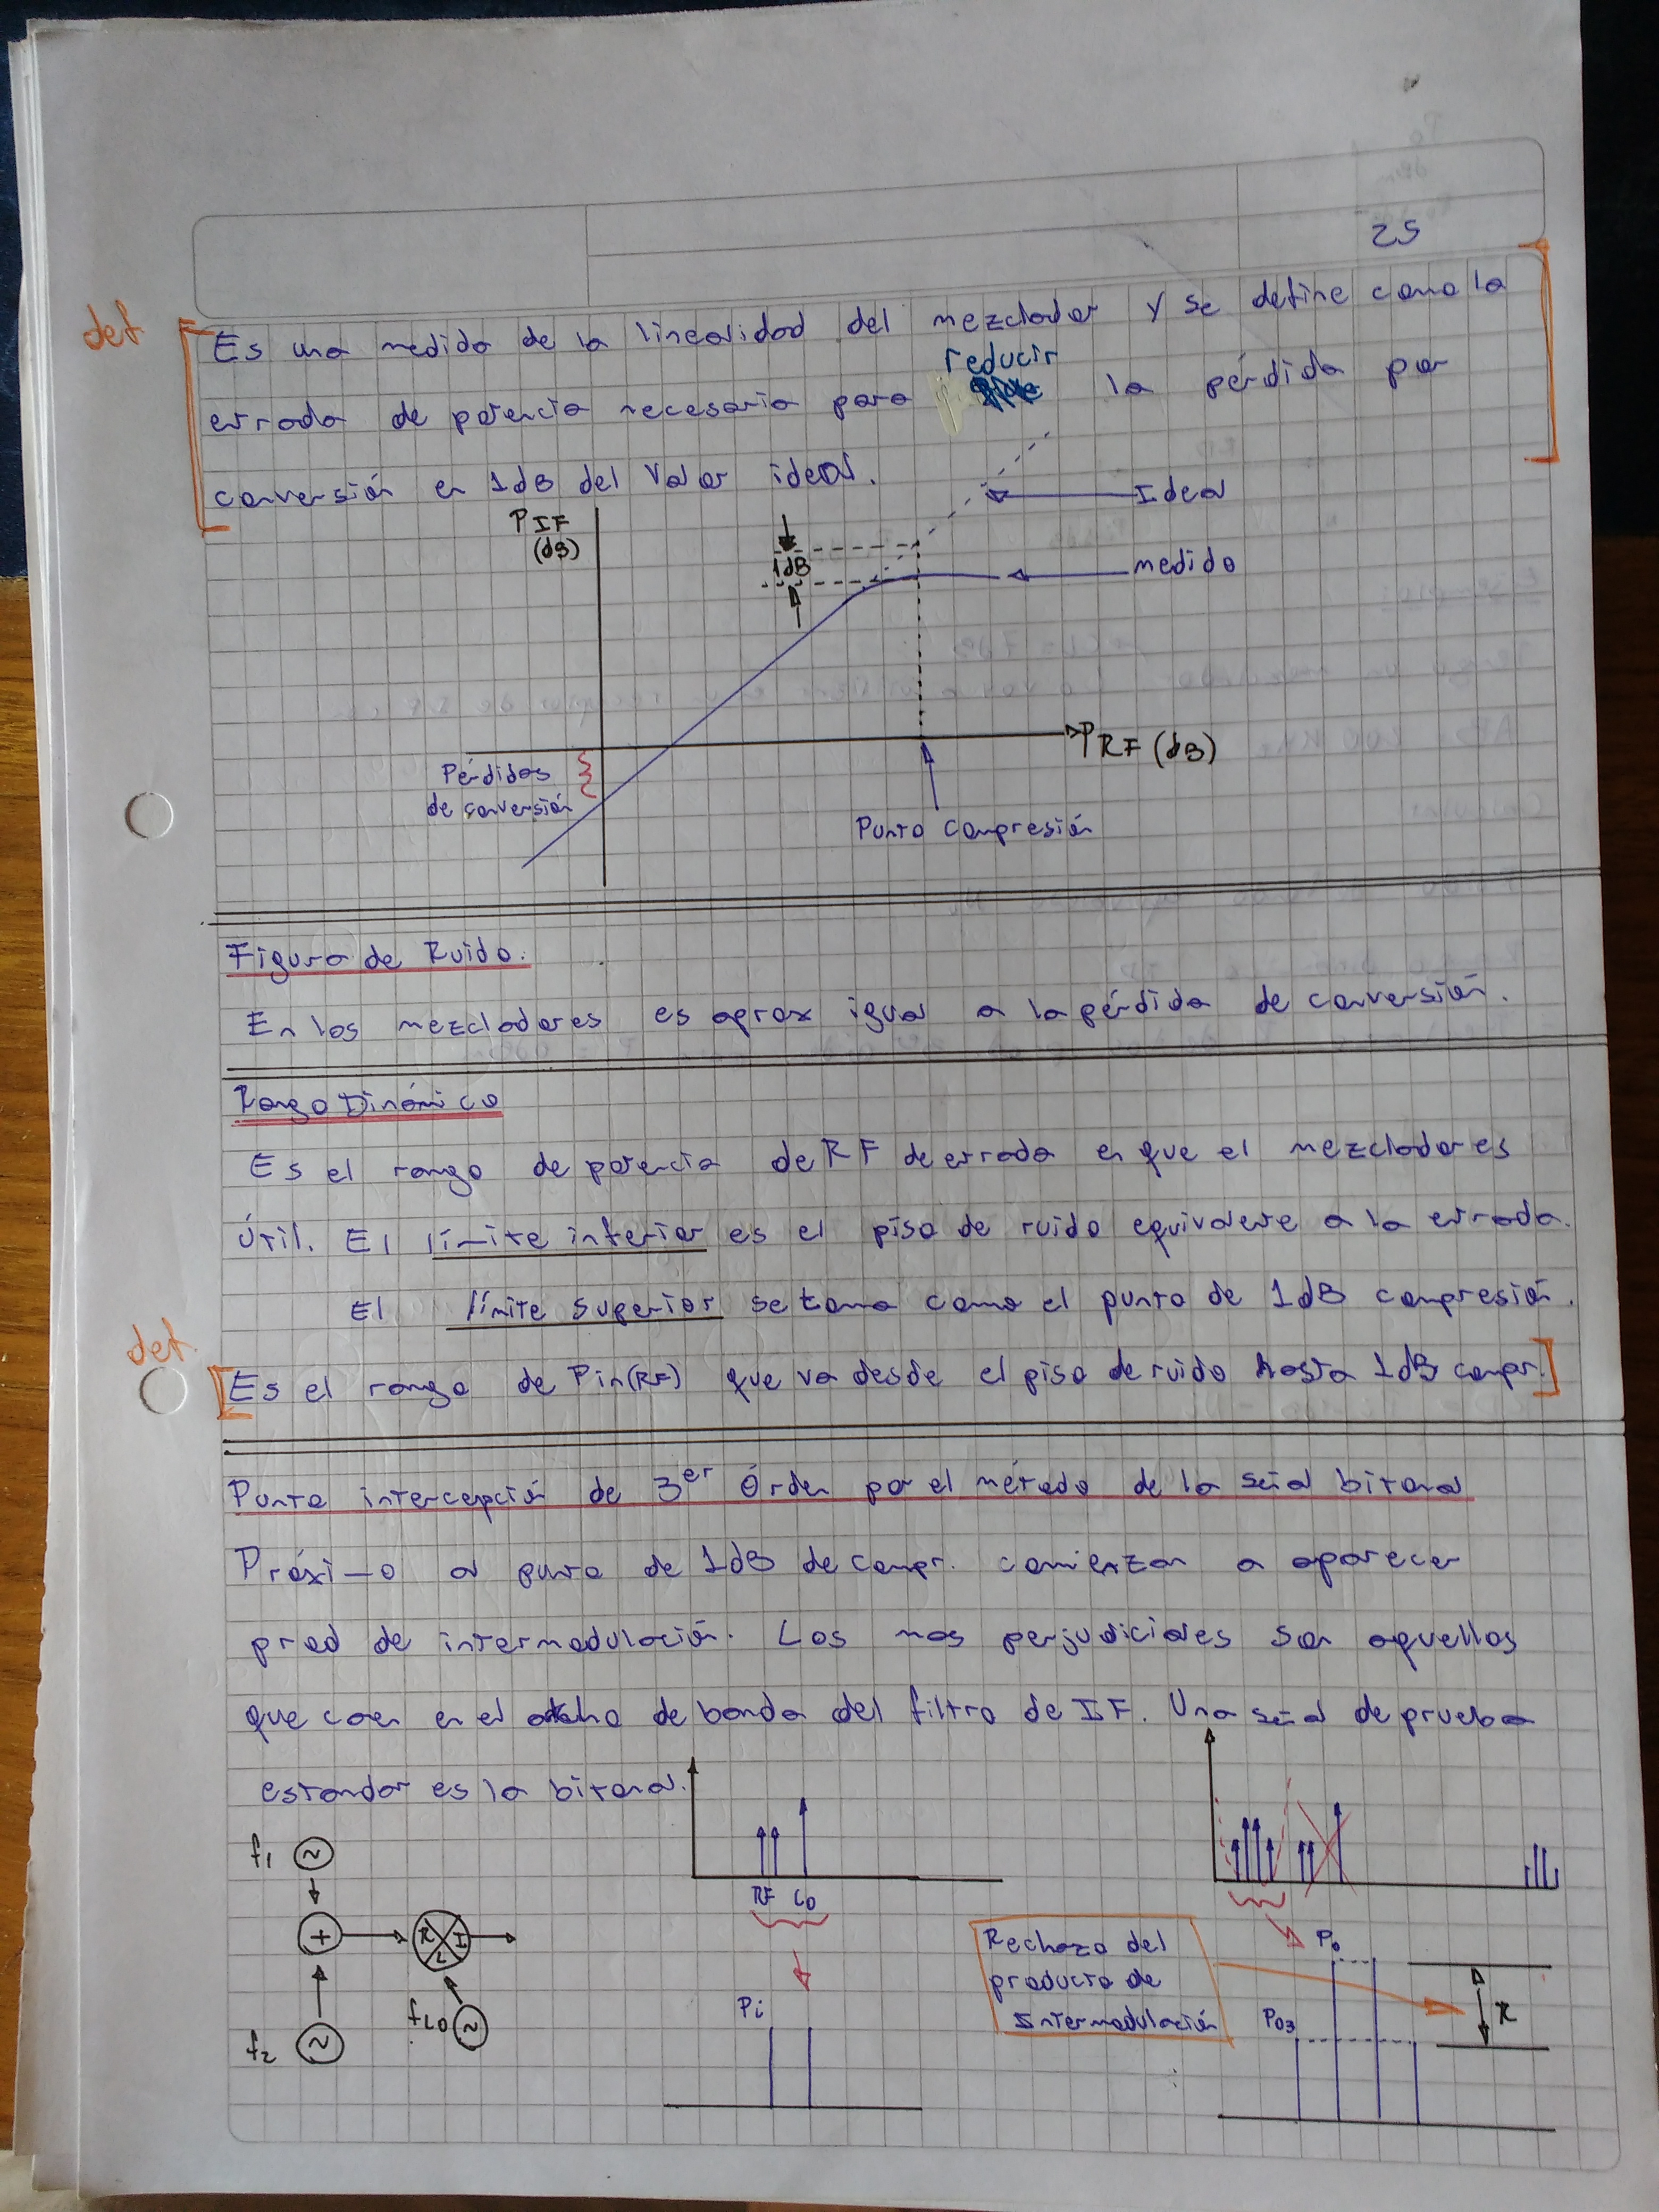 25
def.
Es una medida de la linealidad del mezclador y se define como la
entrada de potencia necesaria para reducir la pérdida por
conversión en 1dB del valor ideal.
PIF
(dB)
1dB
Ideal
medido
PRF (dB)
Pérdidas
de conversión
Punto compresión
Figura de Ruido.
En los mezcladores es aprox igual a la pérdida de conversión.
Rango Dinámico
Es el rango de potencia de RF de entrada en que el mezclador es
Útil. El límite inferior es el piso de ruido equivalente a la entrada.
El límite superior se toma como el punto de 1dB compresión.
def.
Es el rango de Pin(RF) que va desde el piso de ruido hasta 1dB compr.
Punto intercepción de 3er Órden por el método de la señal bitonal
Próximo al punto de 1dB de compr. comienzan a aparecer
prod de intermodulación. Los mas perjudiciales son aquellos
que caen en el ancho de banda del filtro de IF. Una señal de prueba
estandar es la bitonal.
f1
+
R
I
L
fLO
f2
RF LO
Pi
Rechazo del
producto de
Intermodulación
Po
Po3
R